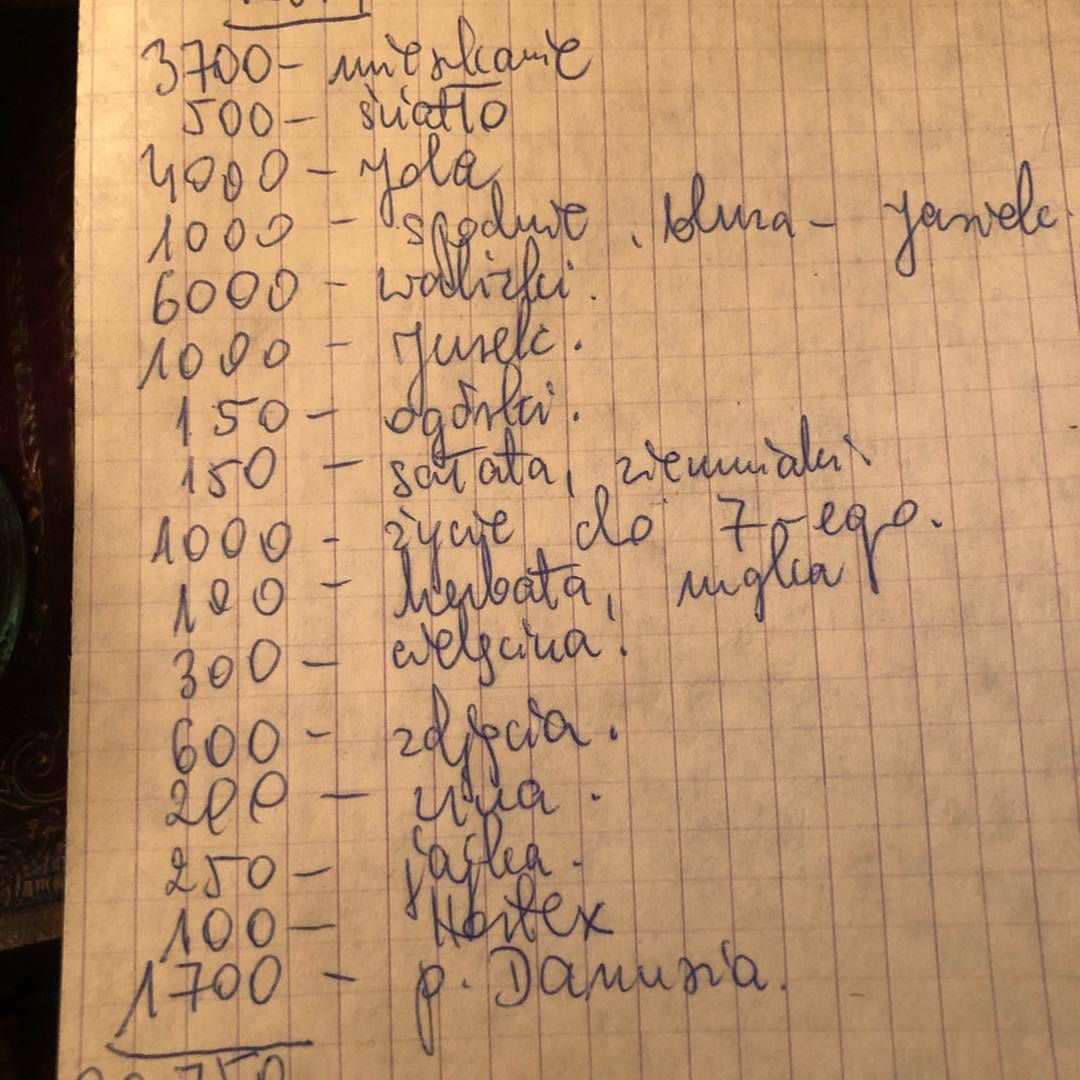 3700- mieszkanie
500- światło
4000 - Jola
1000 - spodnie, bluza - Jarek
6000 - walizki.
1000 - Jurek.
150 - ogórki.
150 - sałata, ziemniaki.
1000 - życie do 7-ego.
100 - herbata,
300 - cielęcina.
600 - zdjęcia.
200 -
250 - jajka.
100 - Hortex
1700 - p. Danusia.
750